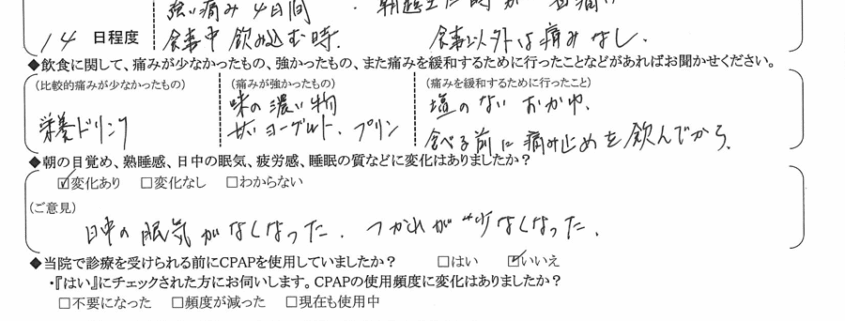 強い痛み 4日間
14 日程度
食事中 飲み込む時.
食事以外は痛みなし.
◆飲食に関して、痛みが少なかったもの、強かったもの、また痛みを緩和するために行ったことなどがあればお聞かせください。
(比較的痛みが少なかったもの)
栄養ドリンク
(痛みが強かったもの)
味の濃い物
甘いヨーグルト、プリン
(痛みを緩和するために行ったこと)
塩のない おかゆ.
食べる前に痛み止めを飲んでから.
◆朝の目覚め、熟睡感、日中の眠気、疲労感、睡眠の質などに変化はありましたか？
☑変化あり □変化なし □わからない
(ご意見)
日中の眠気がなくなった. つかれが少なくなった.
◆当院で診療を受けられる前にCPAPを使用していましたか？ □はい ☑いいえ
・『はい』にチェックされた方にお伺いします。CPAPの使用頻度に変化はありましたか？
□不要になった □頻度が減った □現在も使用中